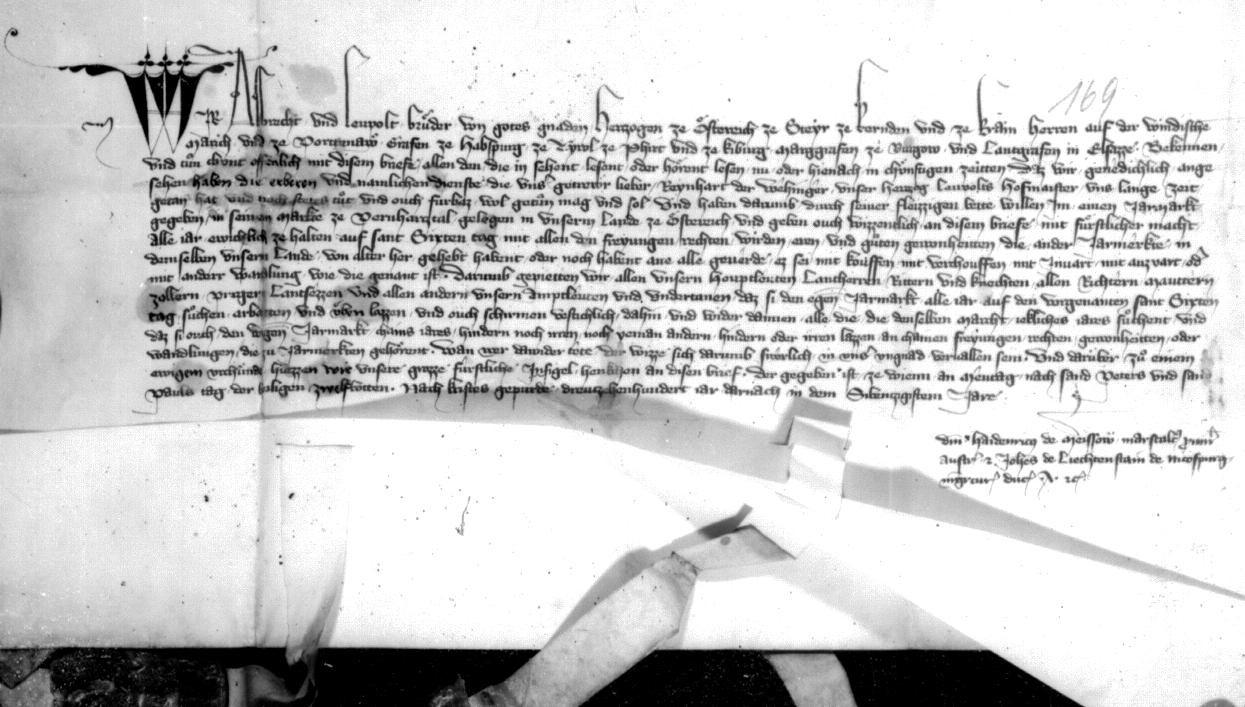 169
WIR Albrecht und Leupolt bruͤder von gotes gnaden Herczogen ze Oͤsterreich ze Steyr ze Kernden und ze Krain Herren auf der windischn
March und ze Portenaw Grafen ze Habspurg ze Tyrol ze Phirt und ze Kiburg Marggrafen ze Burgow und Lantgrafen in Elsazze Bekennen
und tuͦn chunt offenlich mit disem briefe allen den die in sehent lesent oder hoͤrent lesen nu oder hienach in chuͤnftigen zeitten Daz wir genedichlich ange
sehen haben die erberen und namlichen dienste die uns getrewr lieber Reynhart der Wehinger unser Herczog Leupolts Hofmaister uns lange zeit
getan hat und noch stetes tuͦt und ouch furbaz wol getuͦn mag und sol Und haben darumb durch seiner fleizzigen bette willen Im einen Jarmarkt
gegeben in seinen markt ze Pernhartztal gelegen in unserm Lande ze Oͤsterreich und geben ouch wizzentlich an disem briefe mit fuͤrstlicher macht
alle iar ewichlich ze halten auf sant Sixten tag mit allen den freyungen rechten wirden eren und guͦten gewonheiten die ander Jarmerkte in
demselben unserm Lande von alter her gehebt habent oder noch habent ane alle geuerde ez sei mit kouffen mit verchouffen mit Inuart mit auzvart odr
mit andrr wandlung wie die genant ist Darumb gepietten wir allen unsern Houptleuten Lantherren Rittern und knechten allen Richtern Mauttern
zollern Purgern Lantsezzen und allen andern unsern Amptleuten und undertanen daz si den egen Jarmarkt alle iar auf den vorgenanten sant Sixten
tag suͦchen arbeitten und uͤben lazzen und ouch schirmen vestichlich dahin und wider dannen alle die die denselben marcht iekliches iares suͦchent und
daz si ouch den vogen Jarmarkt chains iares hindern noch irren noch yeman andern hindern oder irren lazzen an chainen freyungen rechten gewonheiten oder
wandlungen die zu Jarmerkten gehoͤrent Wan wer dawider tete der wizze sich darumb swerlich in uns ungnad vervallen sein Und daruber zuͦ einem
ewigem urchunde hiezzen wir unsere grozze fuͤrstliche Insigel henkchen an disen brief Der gegeben ist ze Wienn an Mentag nach sand Peters und sand
Pauls tag der heiligen zwelfbotten Nach kristes gepurde dreutzehenhundert iar darnach in dem Sibentzigistem Jare
dns Haidenricus de Meissow marscalcus provincialis
Austr et Johes de Liechtenstain de Nicospurg
mgr cur ducis A etc